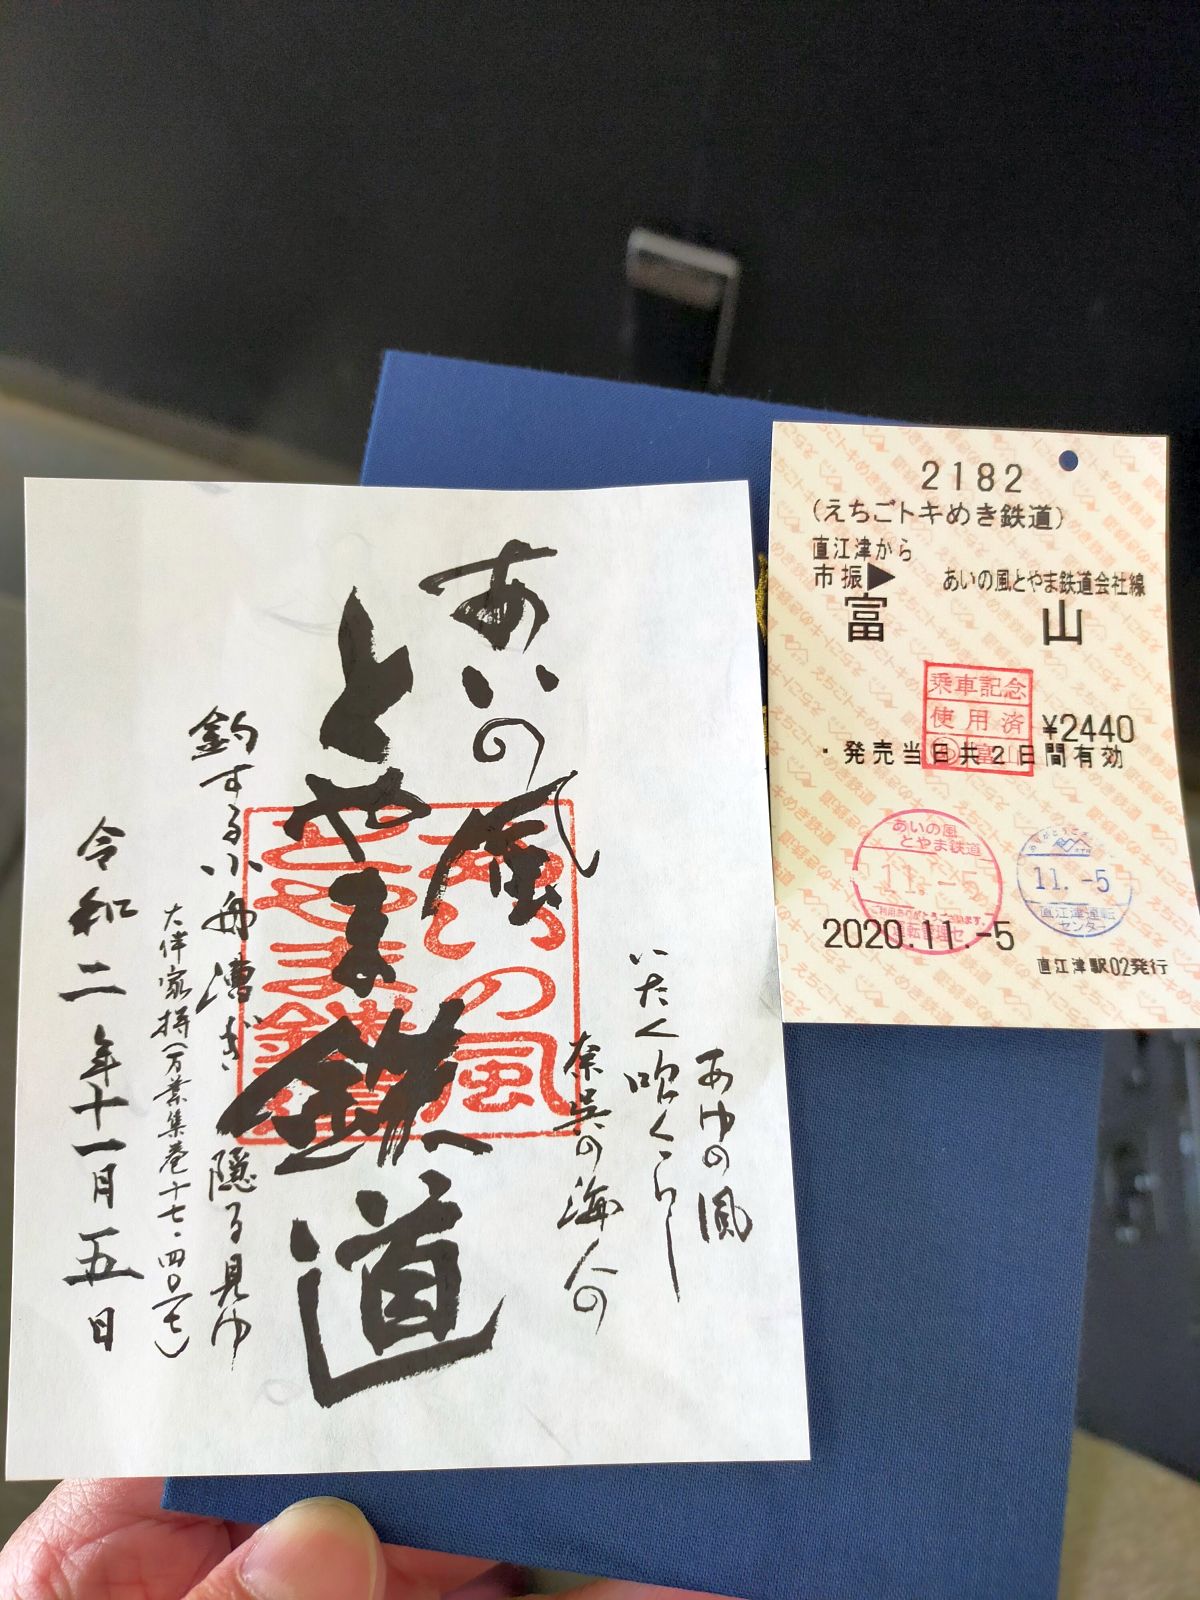 あゆの風
いたく吹くらし
奈呉の海人の
あいの風
とやま鉄道
釣する小舟漕ぎ隠る見ゆ
大伴家持(万葉集巻十七・四〇一七)
令和二年十一月五日
あいの風
とやま鉄道
2182
(えちごトキめき鉄道)
直江津から
市振▶ あいの風とやま鉄道会社線
富山
乗車記念
使用済
富山
¥2440
・発売当日共2日間有効
あいの風
とやま鉄道
11.-5
ご利用ありがとうございます。
ありがとうござい
11.-5
直江津運転
センター
2020.11.-5
直江津駅02発行